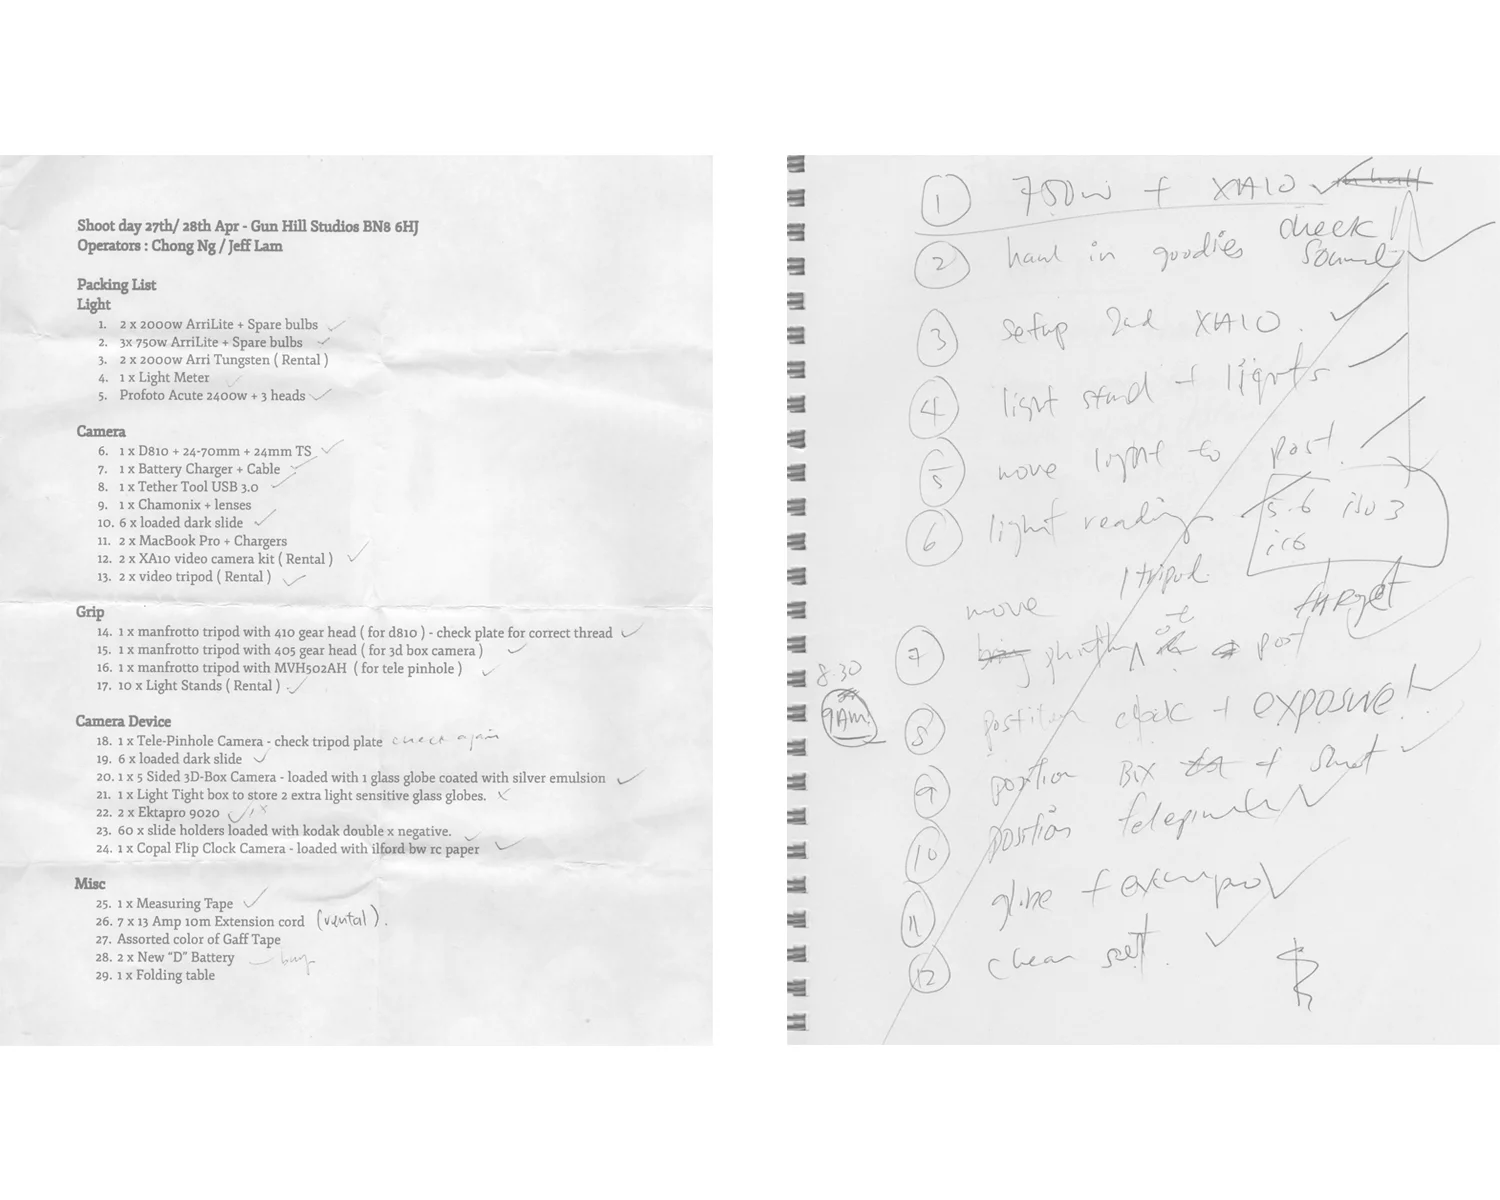 Shoot day 27th/ 28th Apr - Gun Hill Studios BN8 6HJ
Operators : Chong Ng / Jeff Lam
Packing List
Light
1. 2 x 2000w ArriLite + Spare bulbs
2. 3x 750w ArriLite + Spare bulbs
3. 2 x 2000w Arri Tungsten ( Rental )
4. 1 x Light Meter
5. Profoto Acute 2400w + 3 heads
Camera
6. 1 x D810 + 24-70mm + 24mm TS
7. 1 x Battery Charger + Cable
8. 1 x Tether Tool USB 3.0
9. 1 x Chamonix + lenses
10. 6 x loaded dark slide
11. 2 x MacBook Pro + Chargers
12. 2 x XA10 video camera kit ( Rental )
13. 2 x video tripod ( Rental )
Grip
14. 1 x manfrotto tripod with 410 gear head ( for d810 ) - check plate for correct thread
15. 1 x manfrotto tripod with 405 gear head ( for 3d box camera )
16. 1 x manfrotto tripod with MVH502AH ( for tele pinhole )
17. 10 x Light Stands ( Rental )
Camera Device
18. 1 x Tele-Pinhole Camera - check tripod plate check again
19. 6 x loaded dark slide
20. 1 x 5 Sided 3D-Box Camera - loaded with 1 glass globe coated with silver emulsion
21. 1 x Light Tight box to store 2 extra light sensitive glass globes.
22. 2 x Ektapro 9020
23. 60 x slide holders loaded with kodak double x negative.
24. 1 x Copal Flip Clock Camera - loaded with ilford bw rc paper
Misc
25. 1 x Measuring Tape
26. 7 x 13 Amp 10m Extension cord (rental).
27. Assorted color of Gaff Tape
28. 2 x New “D” Battery buy
29. 1 x Folding table
1 750w + XA10
check
2 haul in goodies sound
3 setup 2nd XA10.
4 light stand + lights
5 move light to post.
6 light reading 5.6 iso 3
1 tripod.
move target
7 post
8.30
9AM.
8 position clock + exposure!
9 position + shoot
10 position telepinhole
11 globe +
12 clean set.